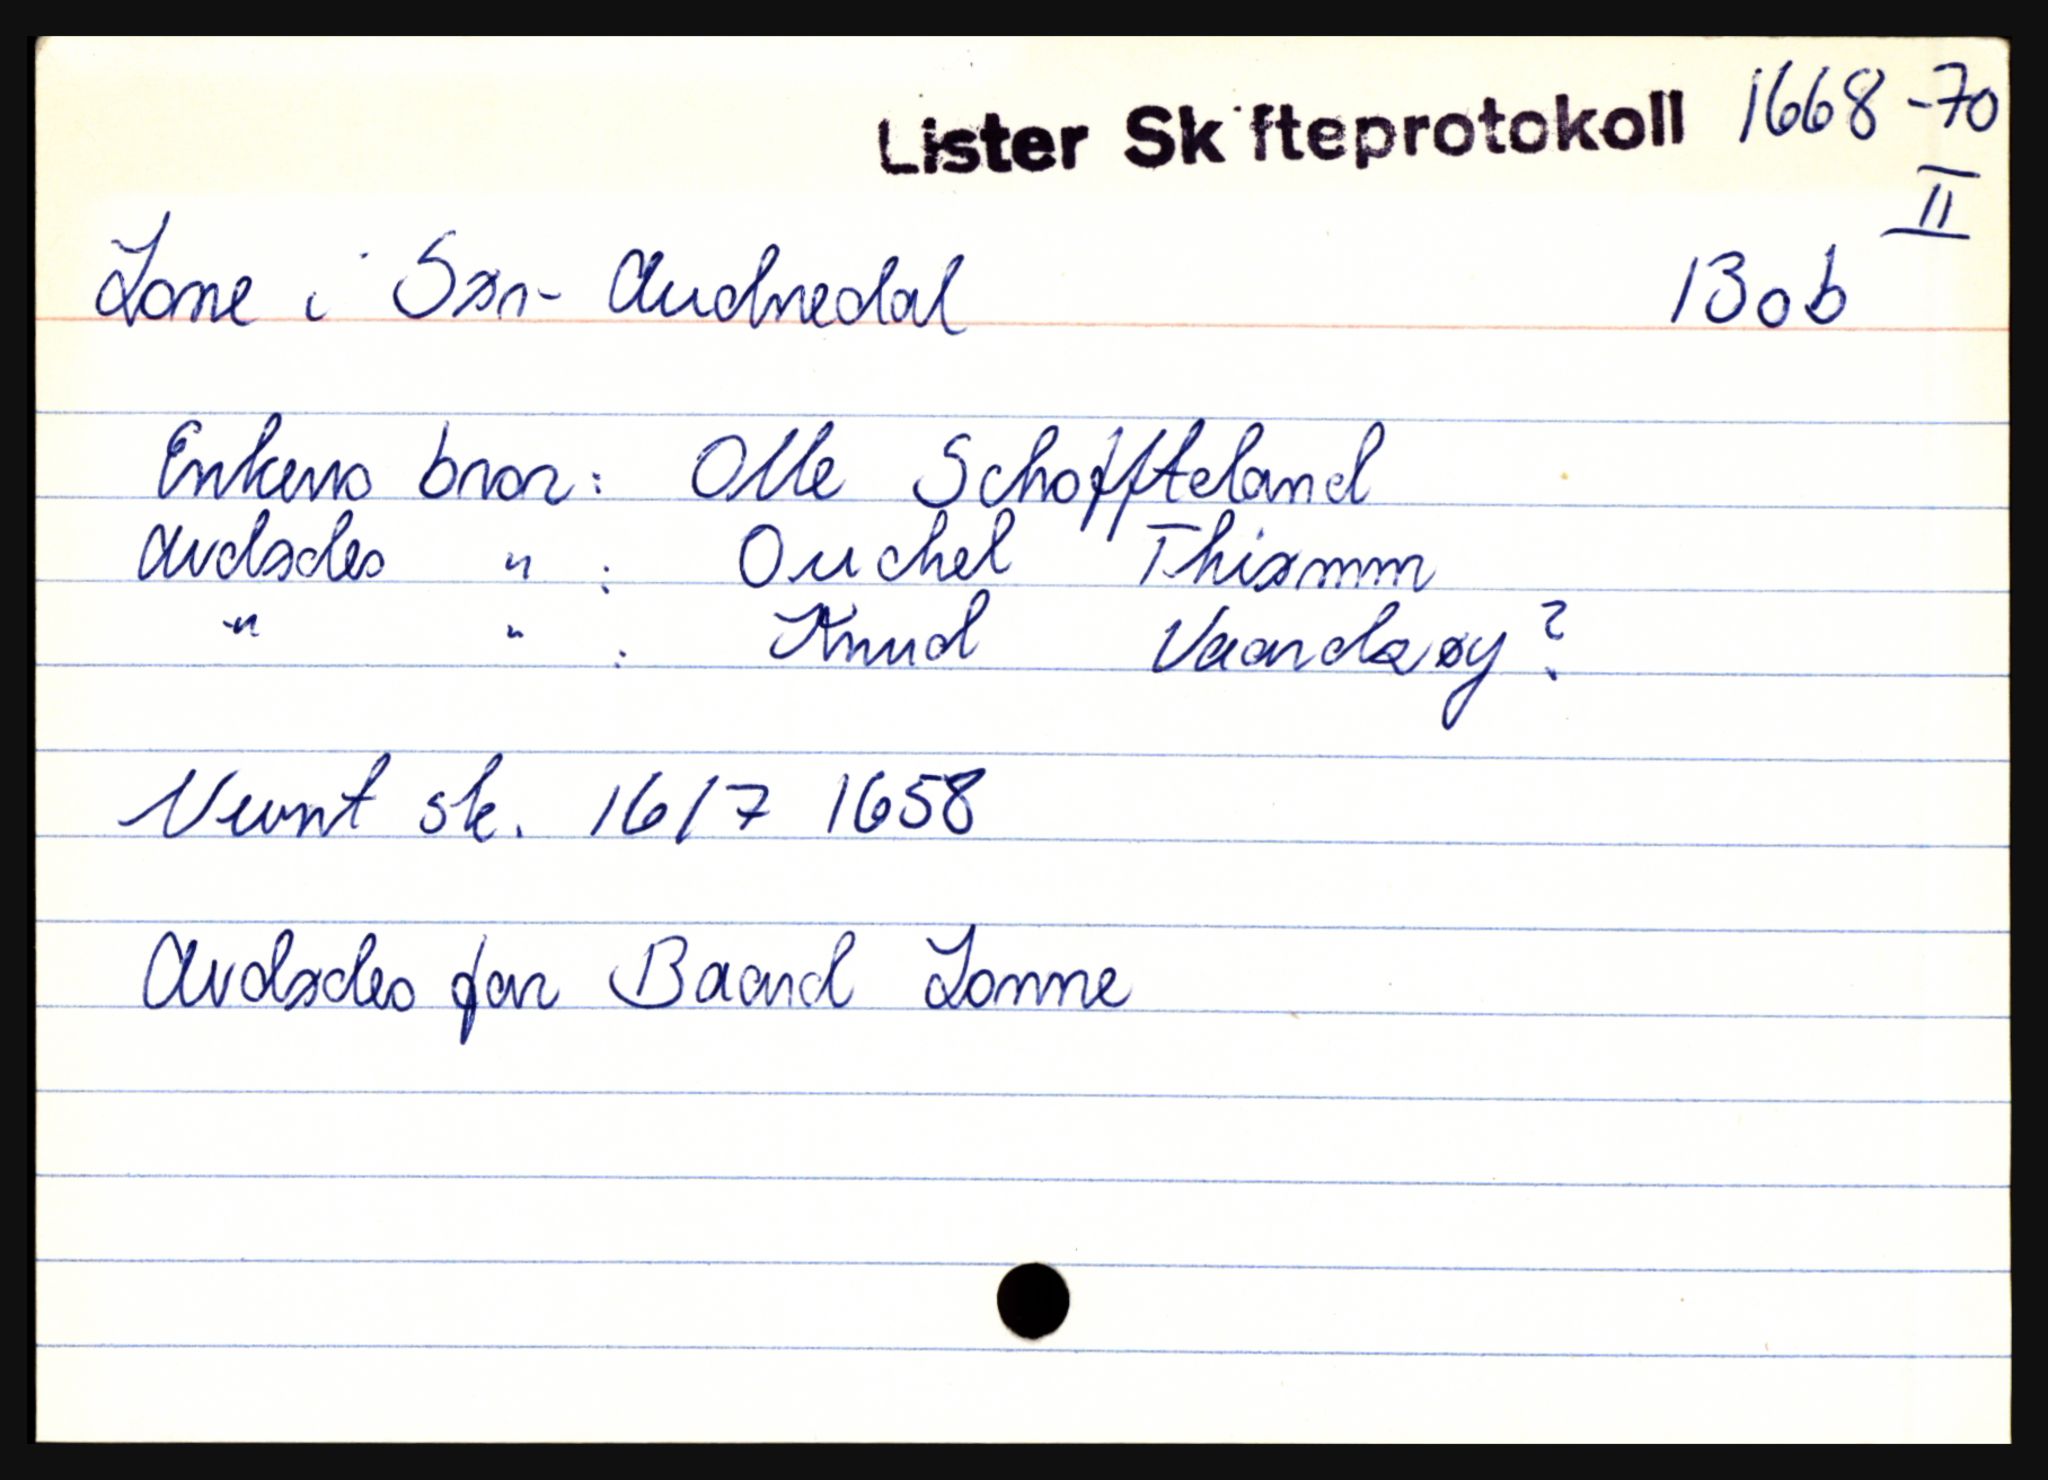 Lister Skifteprotokoll 1668-70
II
Lone i Søn- Audnedal 130b
Enkens bror: Olle Schoffteland
Avdødes " : Ouchel Thiømm
" " : Knud Vaardøy?
Nevnt sk. 16/7 1658
Avdødes far Baard Lonne